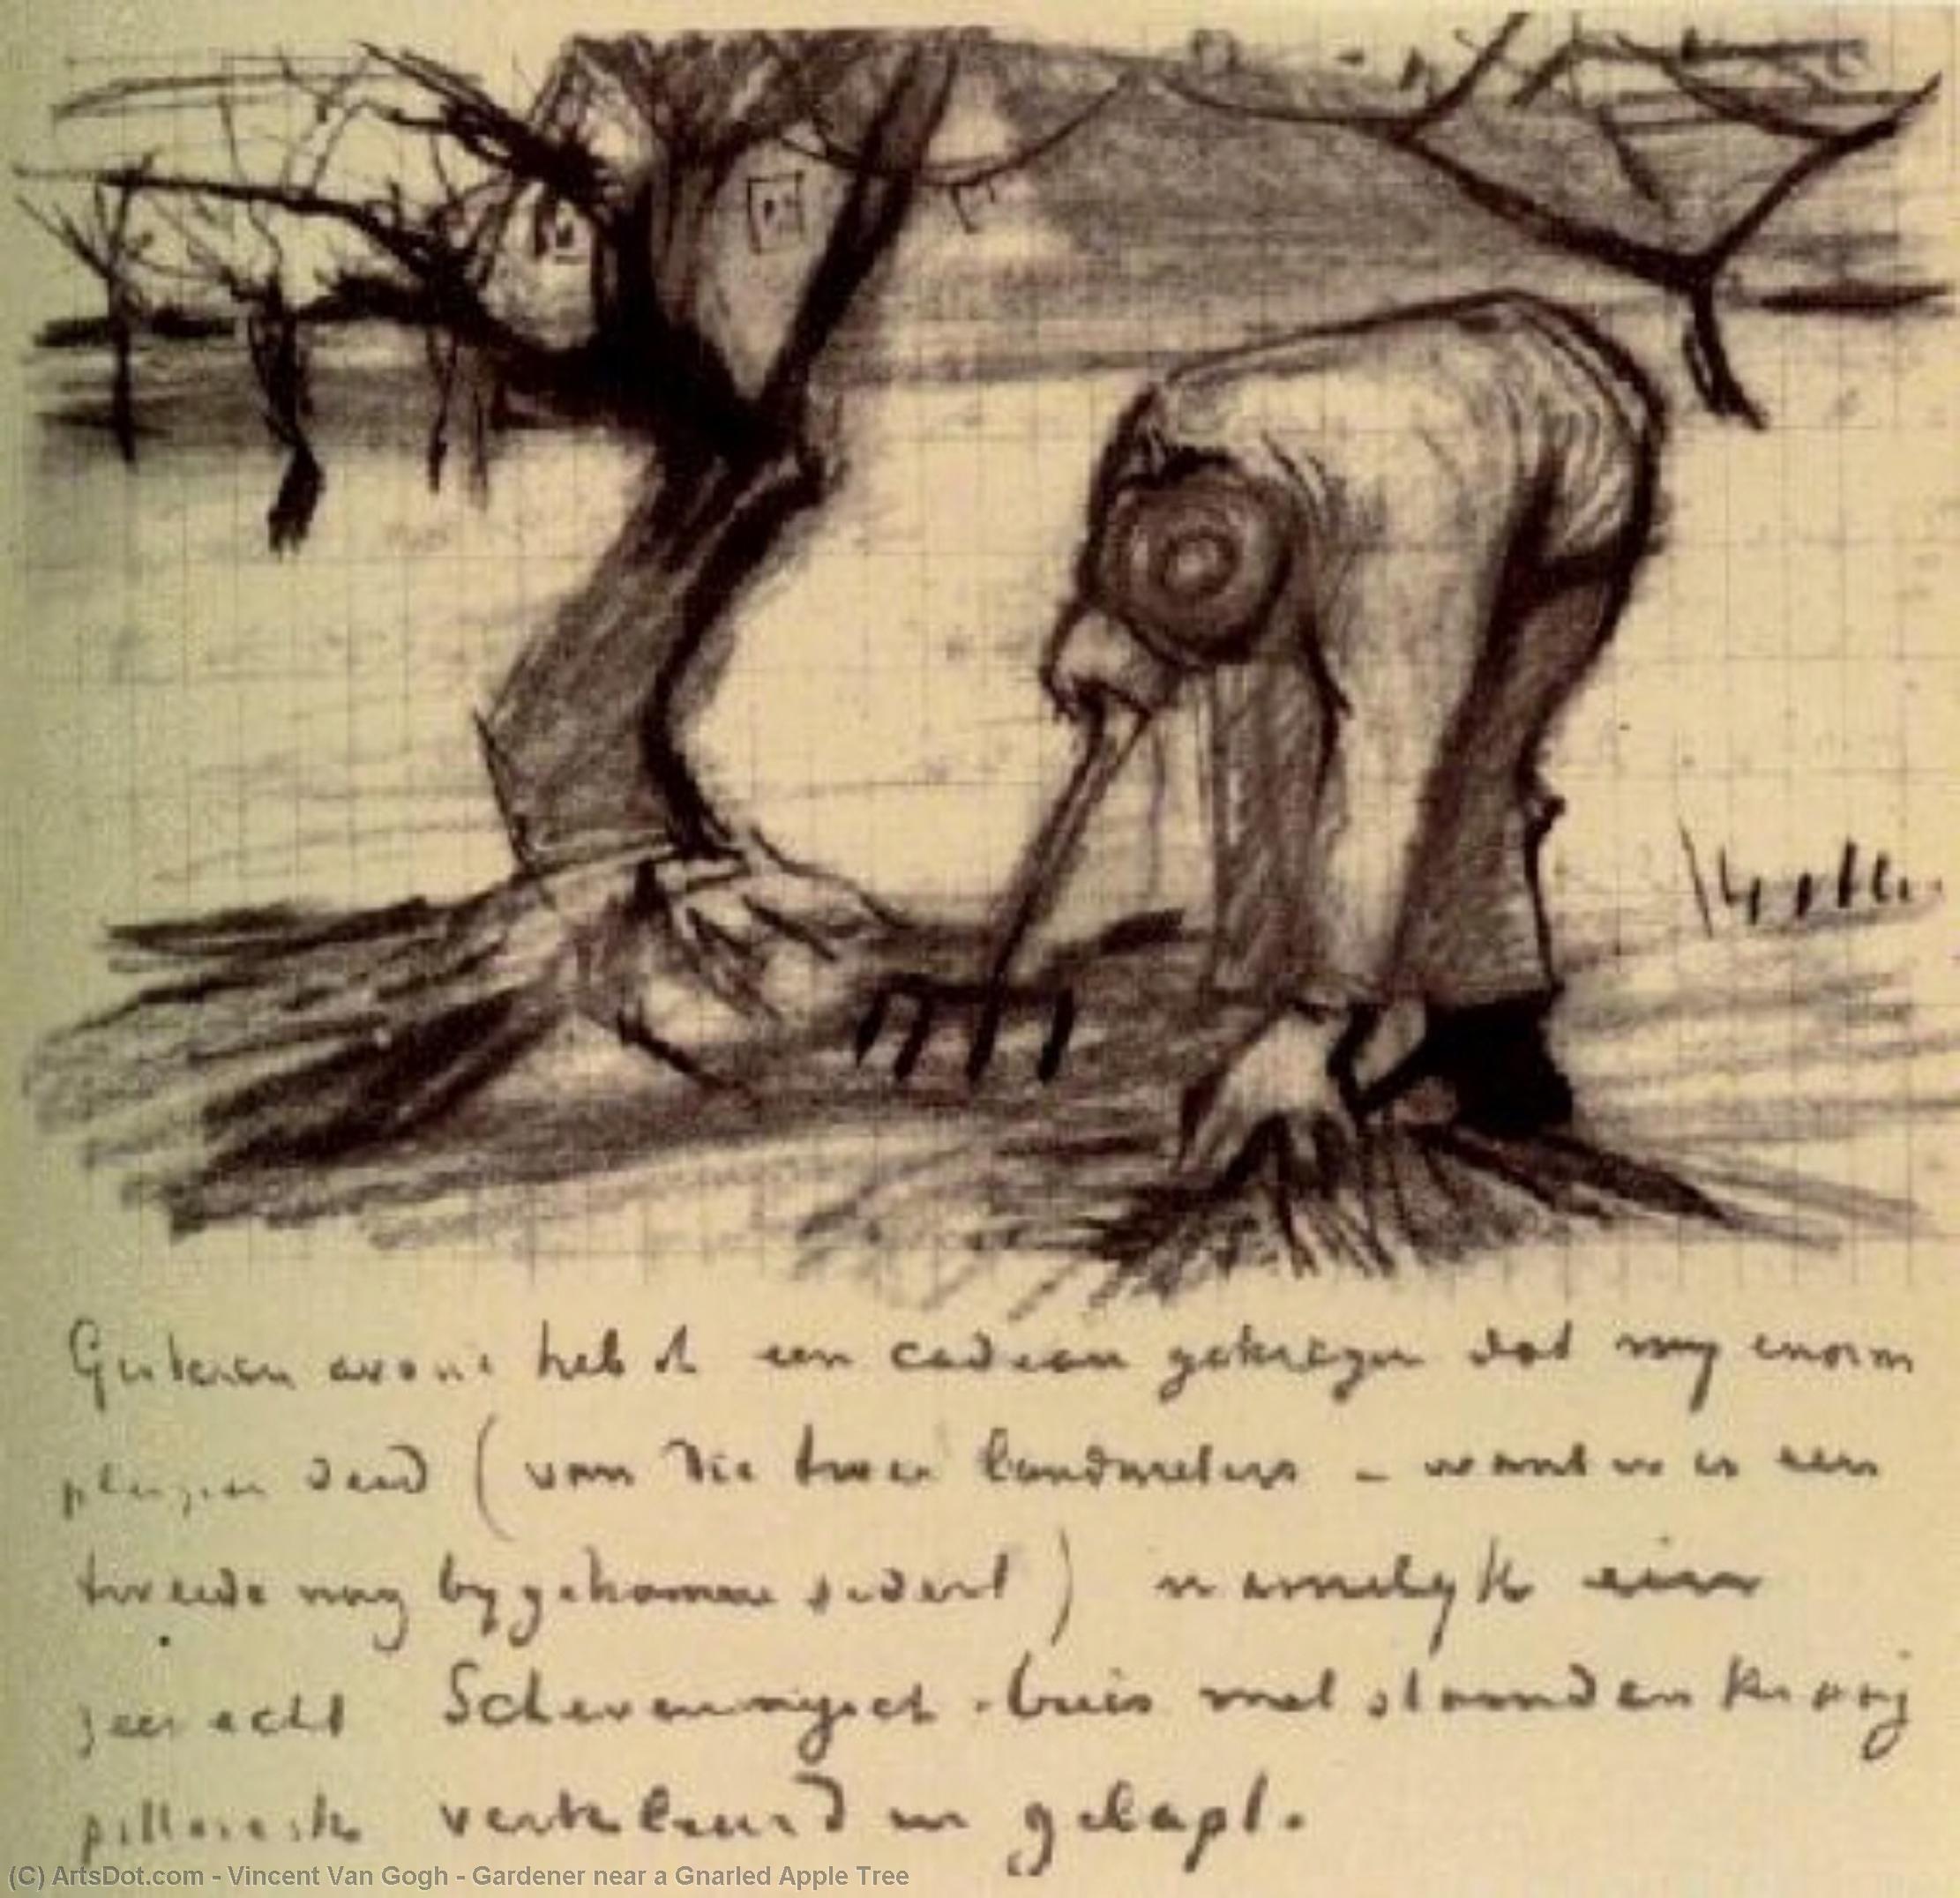 Gisteren avond heb ik een cadeau gekregen dat my enorm
plezier deed (van die twee landmeters – want er is een
tweede nog bygekomen sedert) namelyk een
zeer echt Scheveningsch buis met staanden kraag
pittoresk verkleurd en gelapt.
(C) ArtsDot.com - Vincent Van Gogh - Gardener near a Gnarled Apple Tree